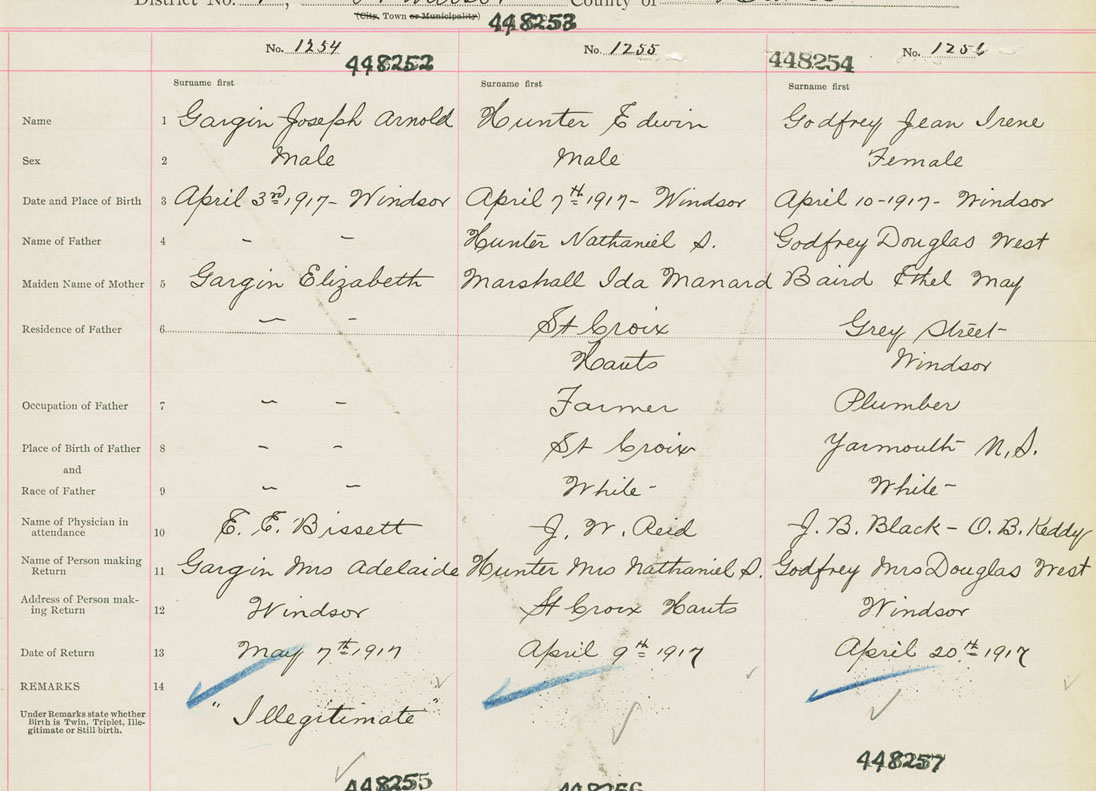 District No. , County of
(City, Town or Municipality)
448253
No. 1254 No. 1255 No. 1256
448252 448254
Surname first Surname first Surname first
Name 1 Gargin Joseph Arnold Hunter Edwin Godfrey Jean Irene
Sex 2 Male Male Female
Date and Place of Birth 3 April 3rd 1917- Windsor April 7th 1917- Windsor April 10-1917- Windsor
Name of Father 4 - - Hunter Nathaniel S. Godfrey Douglas West
Maiden Name of Mother 5 Gargin Elizabeth Marshall Ida Manard Baird Ethel May
Residence of Father 6 - - St Croix Grey Street
Hants Windsor
Occupation of Father 7 - - Farmer Plumber
Place of Birth of Father 8 - - St Croix Yarmouth N.S.
and
Race of Father 9 - - White- White-
Name of Physician in attendance 10 E. E. Bissett J. W. Reid J. B. Black - O. B. Keddy
Name of Person making Return 11 Gargin Mrs Adelaide Hunter Mrs Nathaniel S. Godfrey Mrs Douglas West
Address of Person mak-ing Return 12 Windsor St Croix Hants Windsor
Date of Return 13 May 7th 1917 April 9th 1917 April 20th 1917
REMARKS 14
Under Remarks state whether Birth is Twin, Triplet, Ille-gitimate or Still-birth. "Illegitimate"
448255 448256 448257